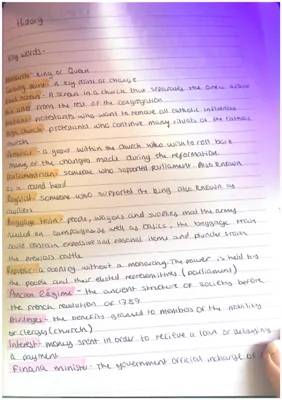 History
Key words -
Monarch - King or Queen
Turning point - A key point or change
Rood screen - A screen in a church that separates the area
the altar from the rest of the congregation
Puritans - protestants who want to remove all catholic influences
High Church - protestants who continue many rituals of the catholic
church
a group within the church who wish to roll back
many of the changes made during the reformation.
Parliamentarian - someone who supported parliament. Also known
as a round head
Royalist - someone who supported the king also known as
cavliers
Baggage train - people, wagons and supplies that the army
needed on campaign. As well as basics, the baggage train
could contain expensive and personal items and plunder from
the previous battle
Republic - a country without a monarchy. The power is held by
the people and their elected representitives (parliament)
Ancien Régime - the ancient structure of society before
the french revolution of 1789
Privileges - the benefits granted to members of the nobility
or clergy (church)
Interest - money spent in order to recieve a loan or delaying
a payment
Finance minister - The government official incharge of